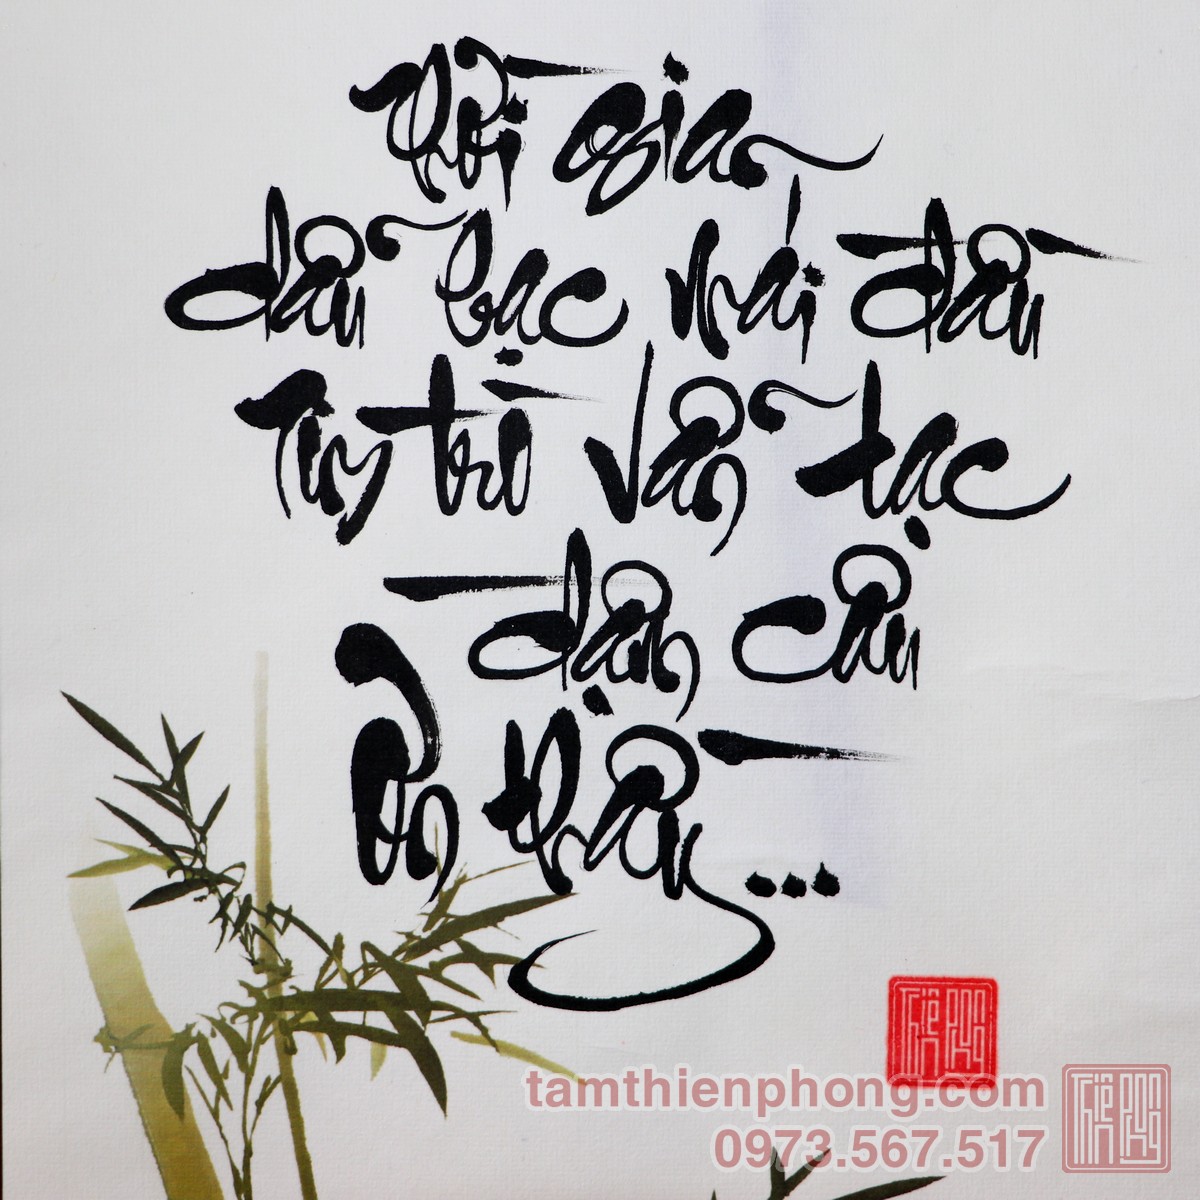 Thời gian
dẫu bạc mái đầu
Tim trò vẫn tạc
đậm câu
ơn thầy...
tamthienphong.com
0973.567.517